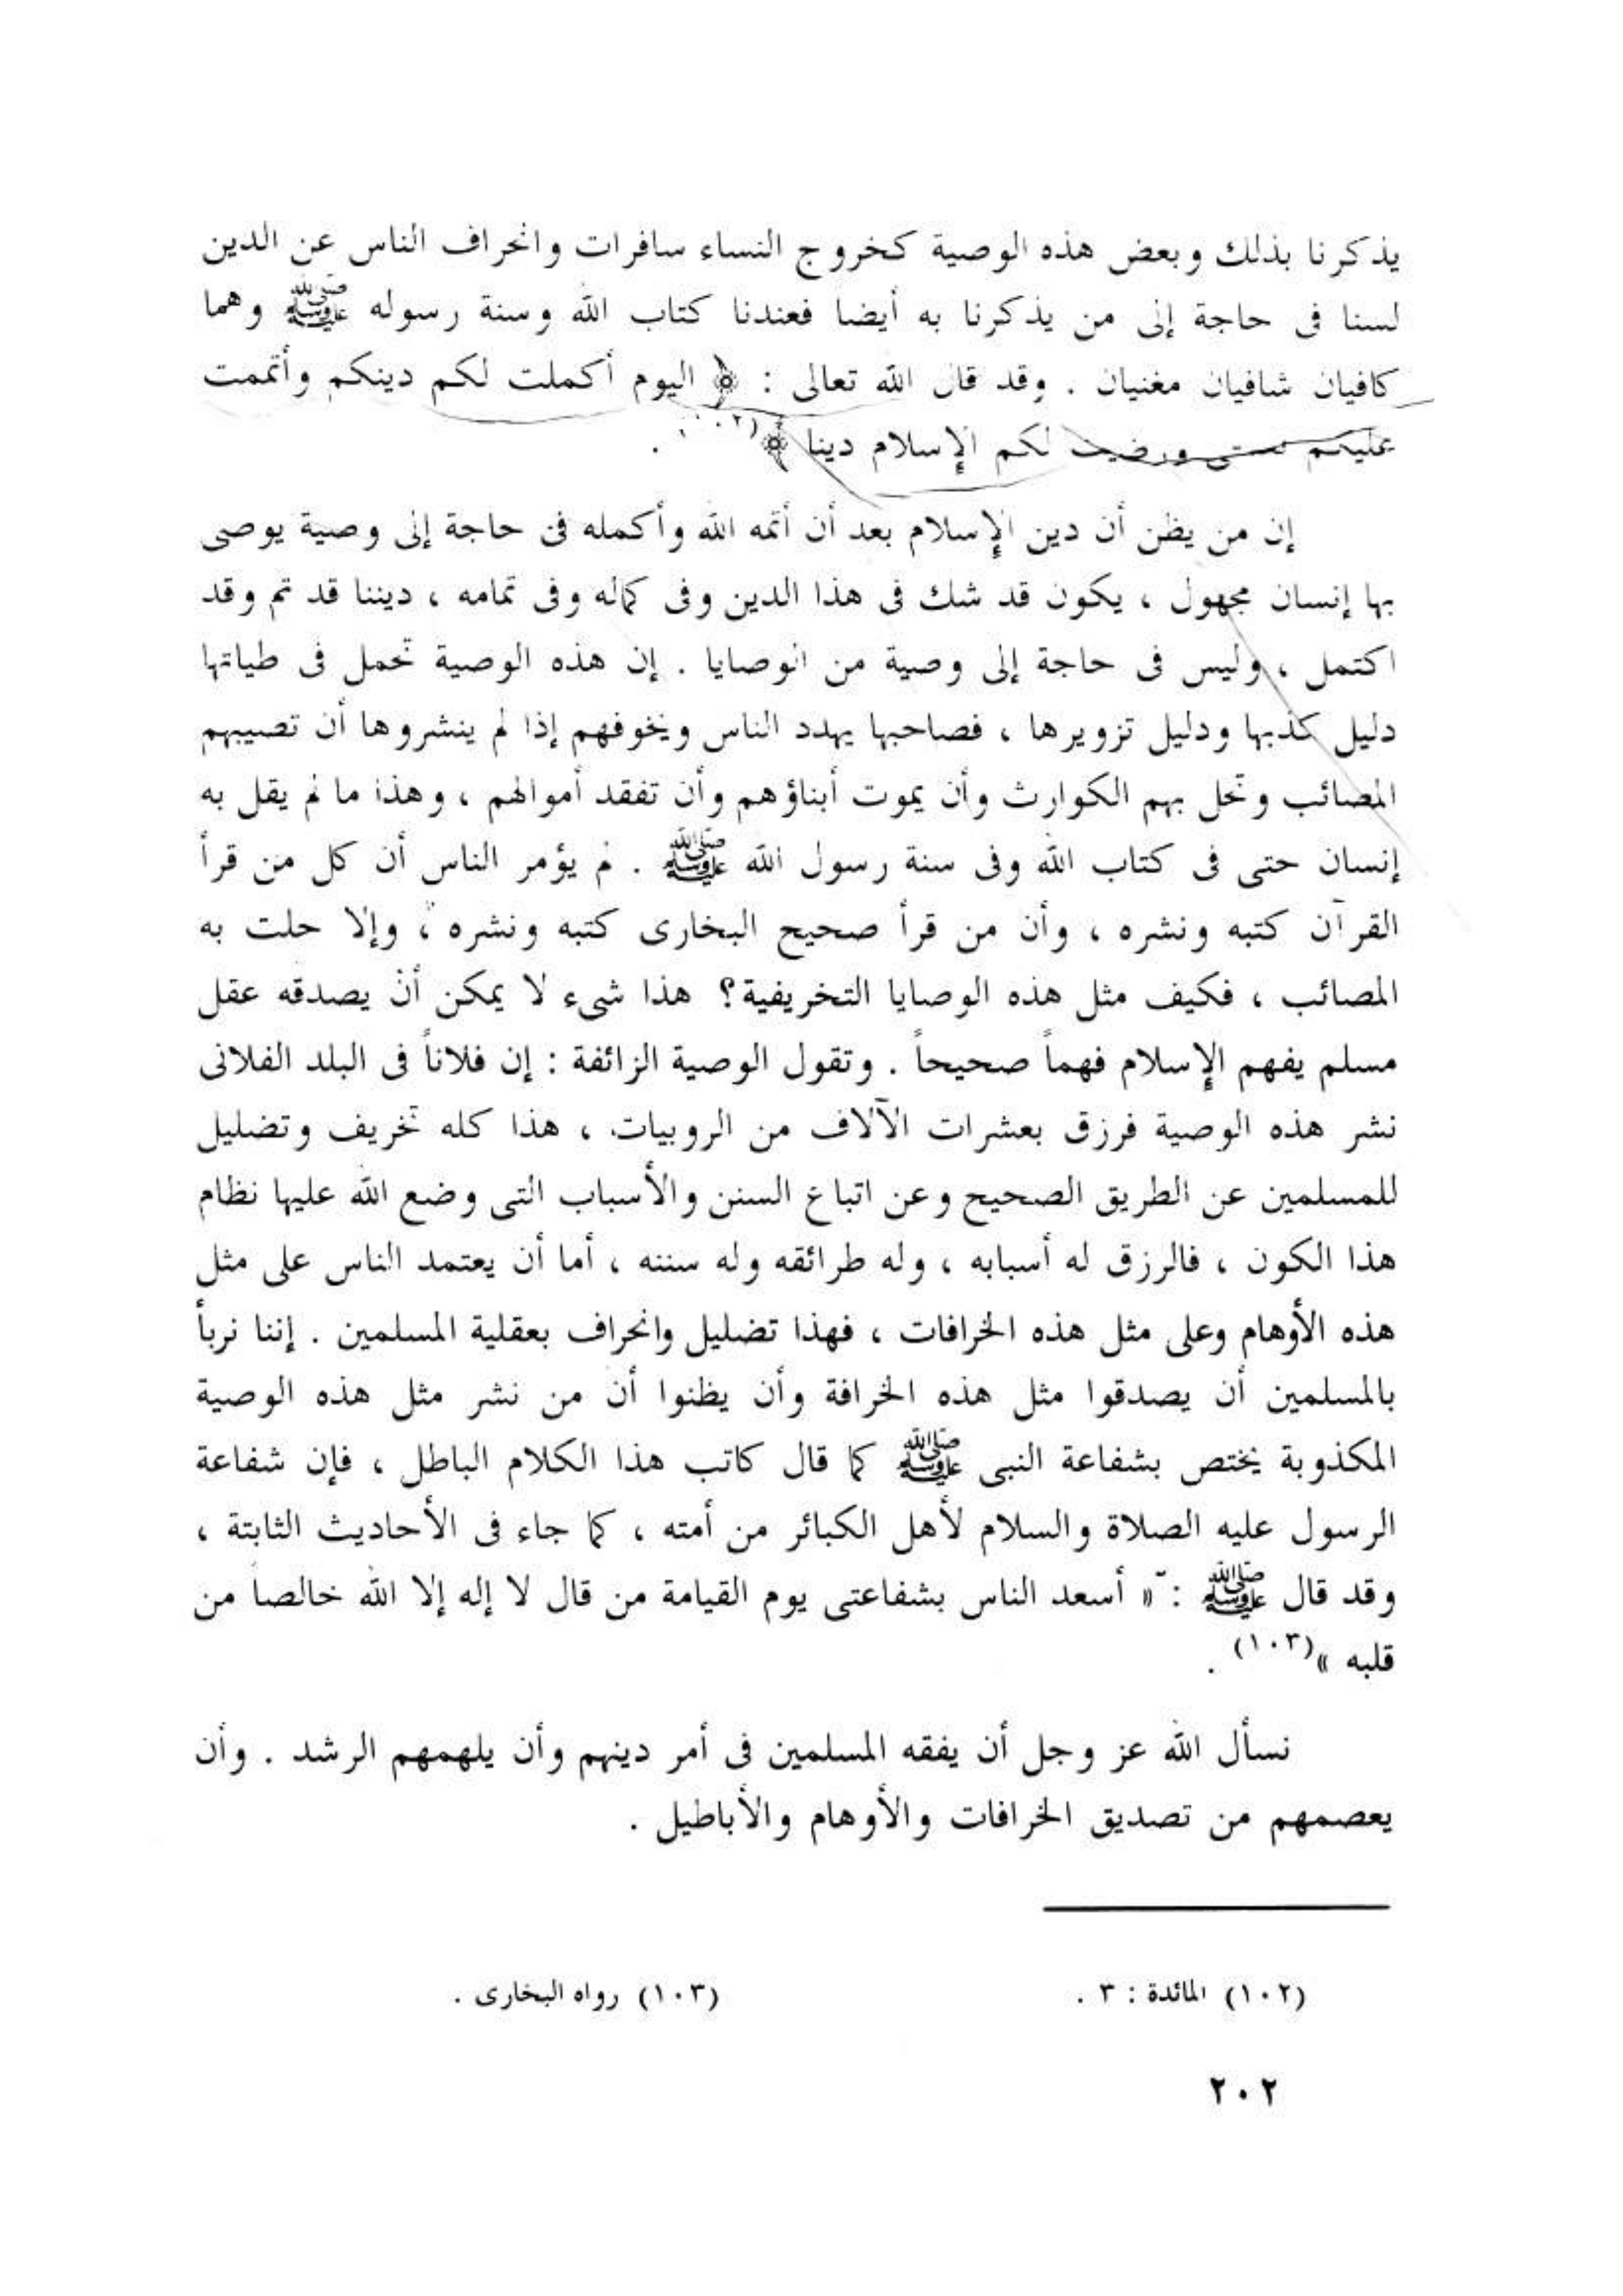 يذكرنا بذلك وبعض هذه الوصية كخروج النساء سافرات وانحراف الناس عن الدين
لسنا فى حاجة إلى من يذكرنا به أيضا فعندنا كتاب الله وسنة رسوله ﷺ وهما
كافيان شافيان مغنيان . وقد قال الله تعالى : ﴿ اليوم أكملت لكم دينكم وأتممت
عليكم نعمتى ورضيت لكم الإسلام دينا ﴾(١٠٢) .
إن من يظن أن دين الإسلام بعد أن أتمه الله وأكمله فى حاجة إلى وصية يوصى
بها إنسان مجهول ، يكون قد شك فى هذا الدين وفى كماله وفى تمامه ، ديننا قد تم وقد
اكتمل ، وليس فى حاجة إلى وصية من الوصايا . إن هذه الوصية تحمل فى طياتها
دليل كذبها ودليل تزويرها ، فصاحبها يهدد الناس ويخوفهم إذا لم ينشروها أن تصيبهم
المصائب وتحل بهم الكوارث وأن يموت أبناؤهم وأن تفقد أموالهم ، وهذا ما لم يقل به
إنسان حتى فى كتاب الله وفى سنة رسول الله ﷺ . لم يؤمر الناس أن كل من قرأ
القرآن كتبه ونشره ، وأن من قرأ صحيح البخارى كتبه ونشره ، وإلا حلت به
المصائب ، فكيف مثل هذه الوصايا التخريفية؟ هذا شىء لا يمكن أن يصدقه عقل
مسلم يفهم الإسلام فهماً صحيحاً . وتقول الوصية الزائفة : إن فلاناً فى البلد الفلانى
نشر هذه الوصية فرزق بعشرات الآلاف من الروبيات ، هذا كله تخريف وتضليل
للمسلمين عن الطريق الصحيح وعن اتباع السنن والأسباب التى وضع الله عليها نظام
هذا الكون ، فالرزق له أسبابه ، وله طرائقه وله سننه ، أما أن يعتمد الناس على مثل
هذه الأوهام وعلى مثل هذه الخرافات ، فهذا تضليل وانحراف بعقلية المسلمين . إننا نربأ
بالمسلمين أن يصدقوا مثل هذه الخرافة وأن يظنوا أن من نشر مثل هذه الوصية
المكذوبة يختص بشفاعة النبى ﷺ كما قال كاتب هذا الكلام الباطل ، فإن شفاعة
الرسول عليه الصلاة والسلام لأهل الكبائر من أمته ، كما جاء فى الأحاديث الثابتة ،
وقد قال ﷺ : « أسعد الناس بشفاعتى يوم القيامة من قال لا إله إلا الله خالصا من
قلبه »(١٠٣) .
نسأل الله عز وجل أن يفقه المسلمين فى أمر دينهم وأن يلهمهم الرشد . وأن
يعصمهم من تصديق الخرافات والأوهام والأباطيل .
(١٠٢) المائدة : ٣ .
(١٠٣) رواه البخارى .
٢٠٢